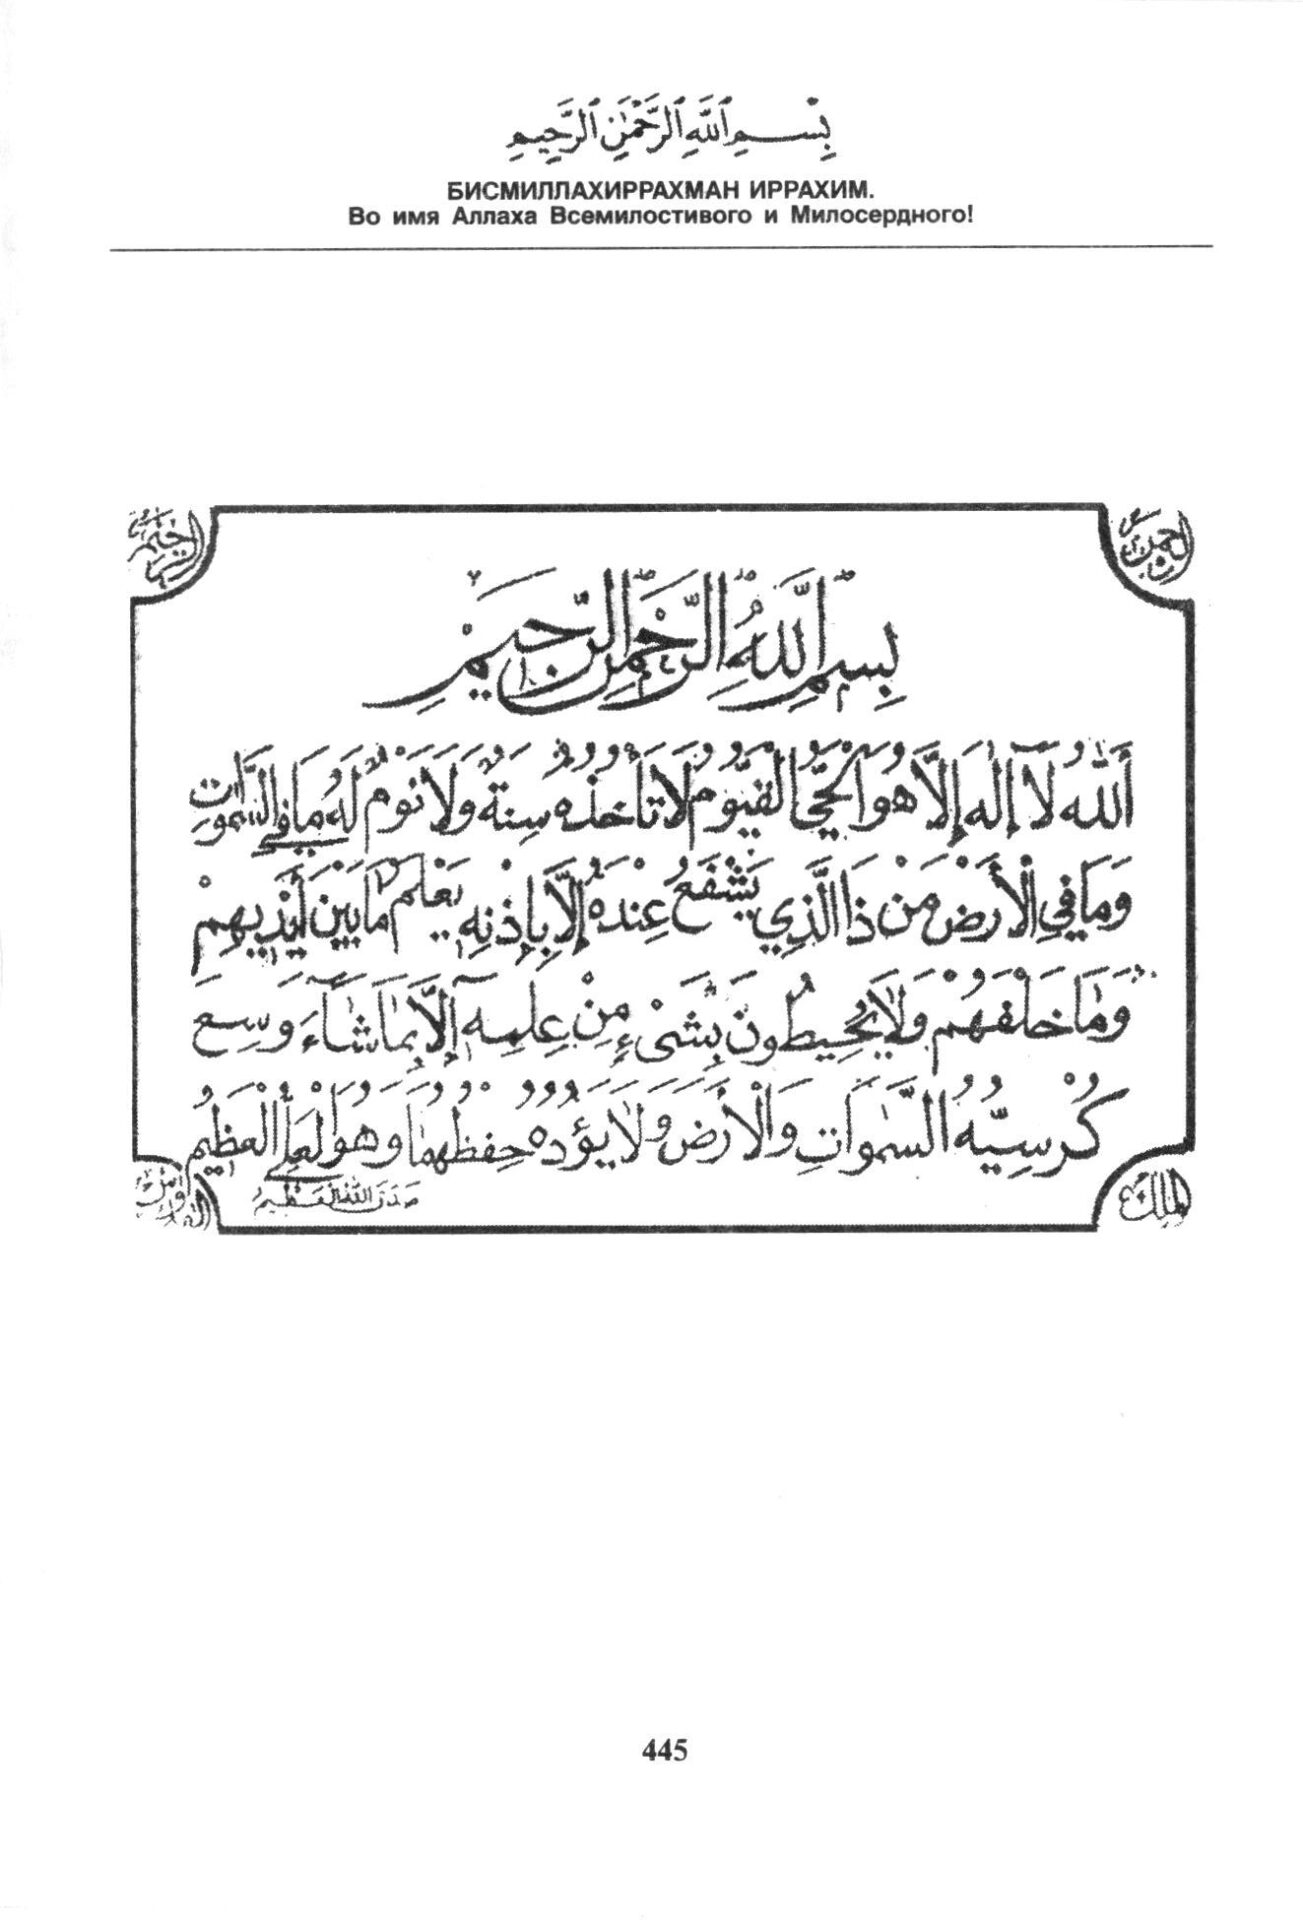 بِسْمِ ٱللَّهِ ٱلرَّحْمَٰنِ ٱلرَّحِيمِ
БИСМИЛЛАХИРРАХМАН ИРРАХИМ.
Во имя Аллаха Всемилостивого и Милосердного!
الرحمن
الرحيم
بِسْمِ اللَّهِ الرَّحْمَنِ الرَّحِيمِ
أَللهُ لَآ إِلَهَ إِلَّا هُوَ الْحَيُّ الْقَيُّومُ لَا تَأْخُذُهُ سِنَةٌ وَلَا نَوْمٌ لَهُ مَا فِي السَّمَوَاتِ
وَمَا فِي الْأَرْضِ مَنْ ذَا الَّذِي يَشْفَعُ عِنْدَهُ إِلَّا بِإِذْنِهِ يَعْلَمُ مَا بَيْنَ أَيْدِيهِمْ
وَمَا خَلْفَهُمْ وَلَا يُحِيطُونَ بِشَىْءٍ مِنْ عِلْمِهِ إِلَّا بِمَا شَآءَ وَسِعَ
كُرْسِيُّهُ السَّمَوَاتِ وَالْأَرْضَ وَلَا يَؤُدُهُ حِفْظُهُمَا وَهُوَ الْعَلِيُّ الْعَظِيمُ
صَدَقَ اللهُ الْعَظِيمُ
الملك
445